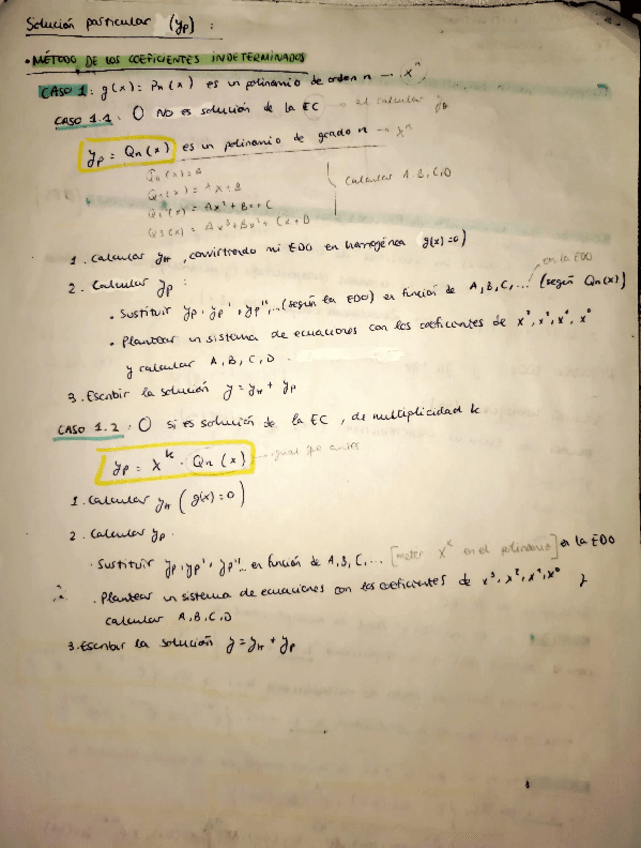 Solución particular (yp) :
• MÉTODO DE LOS COEFICIENTES INDETERMINADOS
CASO 1: g(x) = Pn(x) es un polinomio de orden n → x^n
CASO 1.1 : 0 NO es solución de la EC → al calcular yH
yp = Qn(x) es un polinomio de grado n → x^n
Q0(x) = A
Q1(x) = Ax + B
Q2(x) = Ax² + Bx + C
Q3(x) = Ax³ + Bx² + Cx + D
Calcular A, B, C, D
1. Calcular yH, convirtiendo mi EDO en homogénea g(x)=0)
2. Calcular yp :
en la EDO
• Sustituir yp, yp', yp'', ... (según la EDO) en función de A, B, C, ... (según Qn(x))
• Plantear un sistema de ecuaciones con los coeficientes de x³, x², x¹, x⁰
y calcular A, B, C, D.
3. Escribir la solución y = yH + yp
CASO 1.2 : 0 si es solución de la EC, de multiplicidad k
yp = x^k · Qn(x) → igual que antes
1. Calcular yH (g(x) = 0)
2. Calcular yp.
• Sustituir yp, yp', yp''... en función de A, B, C, ... [meter x^k en el polinomio] en la EDO
• Plantear un sistema de ecuaciones con los coeficientes de x³, x², x¹, x⁰ y
calcular A, B, C, D
3. Escribir la solución y = yH + yp